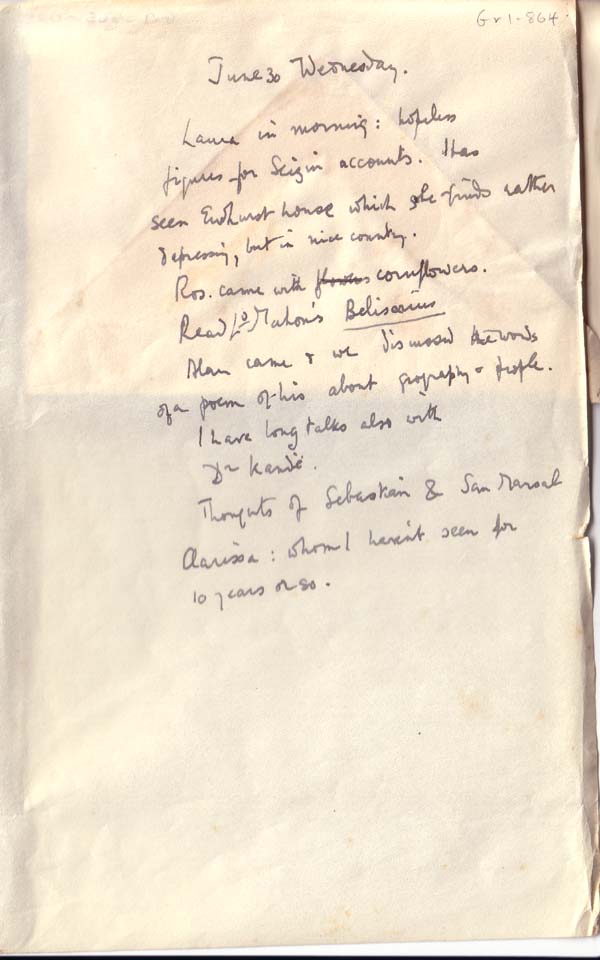 Gr1-864
June 30 Wednesday.
Laura in morning: hopeless
figures for Seizin accounts. Has
seen Ewhurst house which she finds rather
depressing, but in nice country.
Ros. came with flowers cornflowers.
Read Ld Mahon's Belisarius
Alan came & we discussed the words
of a poem of his about geography & people.
I have long talks also with
Dr
Thoughts of Sebastian & San Marsal
Clarissa: whom I haven't seen for
10 years or so.